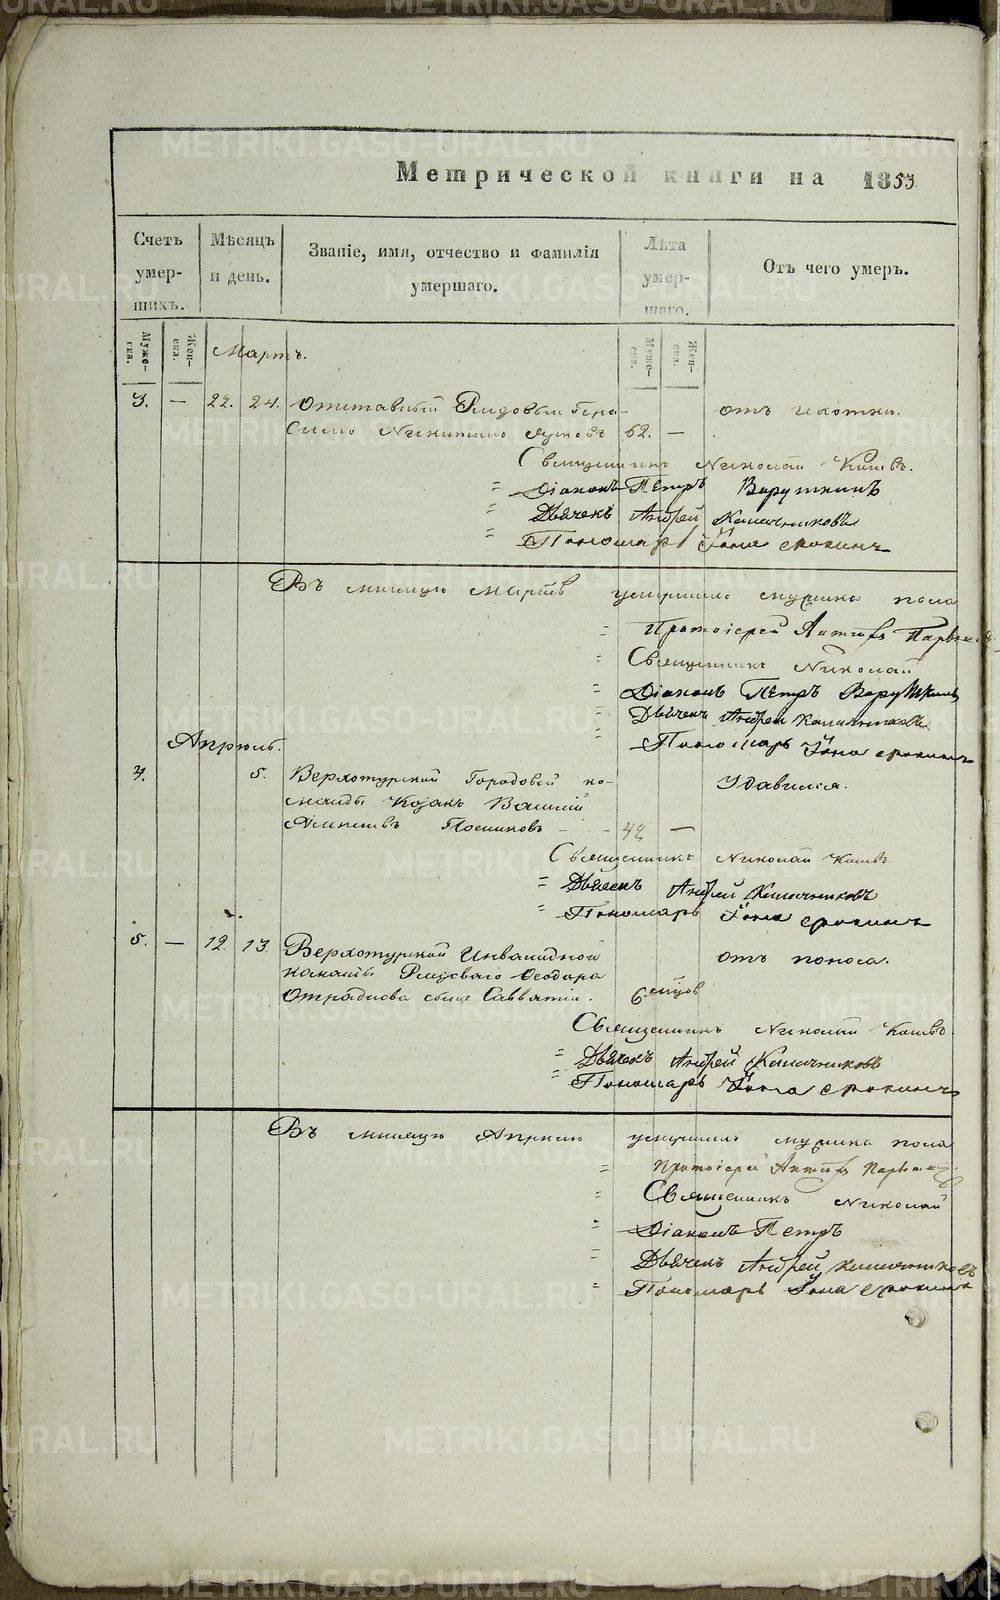 Метрической книги на 1853
Счетъ умер-шихъ.
Мѣсяцъ и день.
Званіе, имя, отчество и фамилія умершаго.
Лѣта умер-шаго.
Отъ чего умеръ.
Муже-ска.
Жен-ска.
Мартъ.
Муже-ска.
Жен-ска.
3. — 22. 24. Отставный Рядовый Гера-
симъ Никитинъ 62. —
отъ чахотки.
Священникъ Николай
" Діаконъ Петръ Варушкинъ
" Дьячекъ Андрей Калачниковъ
" Пономарь Іона Ерохинъ
Въ мисяцѣ Мартѣ умершихъ мужска пола
" Протоіерей
" Священникъ Николай
" Діаконъ Петръ Варушкинъ
" Дьячекъ Андрей Калачниковъ
" Пономарь Іона Ерохинъ
Апрѣль.
4. 5. Верхотурской Городовой ко-
манды Козакъ Василій
Посниковъ - - —
Удавился.
Священникъ Николай
" Дьячекъ Андрей Калачниковъ
" Пономарь Іона Ерохинъ
5. — 12. 13. Верхотурской Инвалидной
команды Рядоваго Ѳеодора
Отраднова сынъ Савватій. 6.
отъ поноса.
Священникъ Николай
" Дьячекъ Андрей Калачниковъ
" Пономарь Іона Ерохинъ
Въ мисяцѣ Апрѣлѣ умершихъ мужска пола
" Протоіерей
" Священникъ Николай
" Діаконъ Петръ
" Дьячекъ Андрей Калачниковъ
" Пономарь Іона Ерохинъ
METRIKI.GASO-URAL.RU